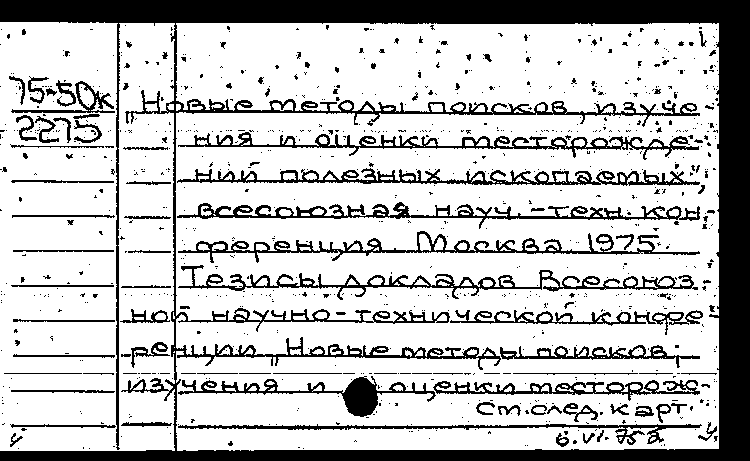 75-50к
2275
„Новые методы поисков, изуче-
ния и оценки месторожде-
ний полезных ископаемых",
всесоюзная науч.-техн. кон-
ференция. Москва 1975.
Тезисы докладов Всесоюз-
ной научно-технической конфе-
ренции „Новые методы поисков,
изучения и оценки месторож-
См. след. карт.
6.VI.75г.